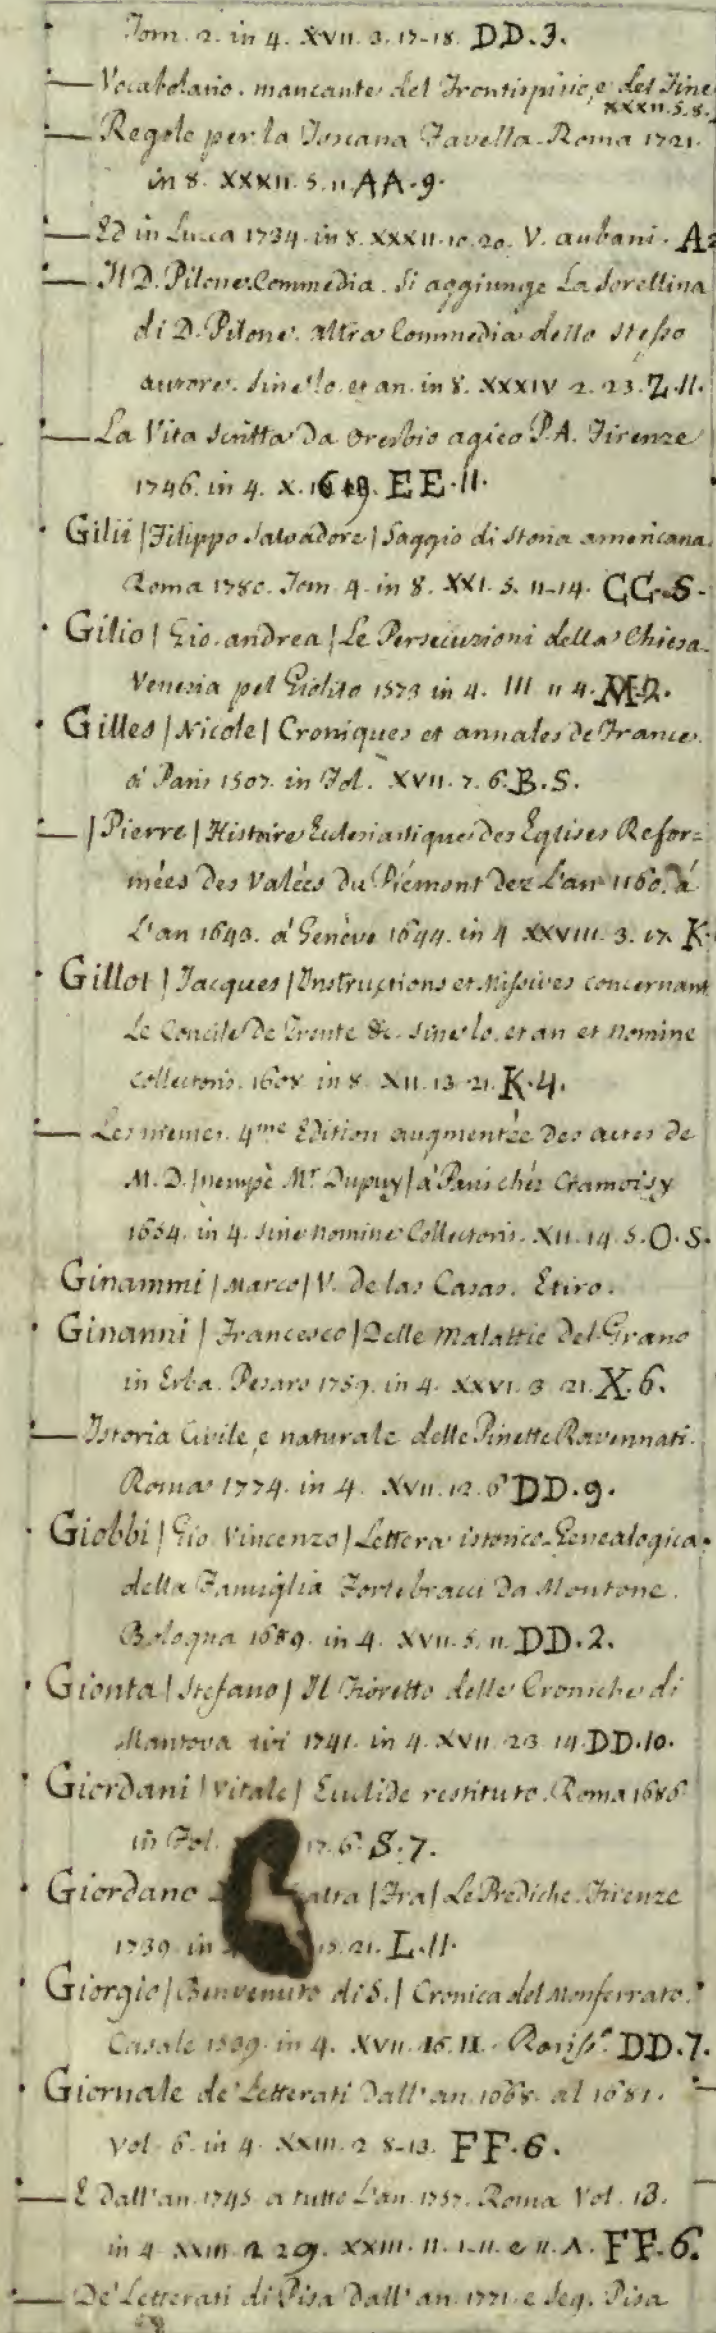 Tom. 2. in 4. XVII. 3. 17-18. DD.3.
— Vocabolario. mancante del Frontispizio, e del Fine
XXXII.5.8.
— Regole per la Toscana Favella. Roma 1721.
in 8. XXXII. 5. 11. AA.9.
— Ed in Lucca 1734. in 8. XXXII. 10. 20. V. aubani.
— Il D. Pilone. Commedia. Si aggiunge La Sorellina
di D. Pilone. altra Commedia dello stesso
autore. Sine lo. et an. in 8. XXXIV 2. 23. Z.11.
— La Vita scritta da Oresbio agieo P.A. Firenze
1746. in 4. X. EE.11.
Gilii | Filippo Salvadore | Saggio di Storia americana.
Roma 1780. Tom. 4. in 8. XXI. 5. 11-14. CC.S.
Gilio | Gio. andrea | Le Persecuzioni della Chiesa.
Venezia pel Giolito 1573 in 4. III 11 4. M.2.
Gilles | Nicole | Croniques et annales de France.
á Paris 1507. in Fol. XVII. 7. 6. B.S.
— | Pierre | Histoire Eclesiastique des Eglises Refor=
mées des Valées du Piémont dez L'an 1160. á
L'an 1643. á Genéve 1644. in 4 XXVIII. 3. 17. K.
Gillot | Jacques | Instructions et Missives concernant
Le Concile de Trente &c. Sine lo. et an et nomine
Collectoris. 1608. in 8. XII. 13. 21. K.4.
— Les mémes. 4me Edition augmentée des actes de
M. D. | nempè Mr. Dupuy | á Paris chés Cramoisy
1654. in 4. sine nomine Collectoris. XII. 14. 5. O.S.
Ginammi | Marco | V. de las Casas. Etiro.
Ginanni | Francesco | Delle Malattie del Grano
in Erba. Pesaro 1759. in 4. XXVI. 3. 21. X.6.
— Istoria Civile, e naturale delle Pinette Ravennati.
Roma 1774. in 4. XVII. 12. 6 DD.9.
Giobbi | Gio. Vincenzo | Lettera istorico-Genealogica
della Famiglia Fortebracci da Montone.
Bologna 1689. in 4. XVII. 5. 11. DD.2.
Gionta | Stefano | Il Fioretto delle Croniche di
Mantova ivi 1741. in 4. XVII. 23. 14. DD.10.
Giordani | Vitale | Euclide restituto. Roma 1686
in Fol. 17. 6. S.7.
Giordano | Fra | Le Prediche. Firenze
1739. in 21. L.11.
Giorgio | Benvenuto di S. | Cronica del Monferrato.
Casale in 4. XVII. 16. 11. Rariss.° DD.7.
Giornale de' Letterati dall'an. 1668. al 1681.
Vol. 6. in 4. XXIII. 2 8-13. FF.6.
— E dall'an. 1745. a tutto L'an. 1757. Roma Vol. 13.
in 4 XXIII. 2 29. XXIII. 11. 1-11. e 11. A. FF.6.
— De' Letterati di Pisa dall'an. 1771. e seg. Pisa